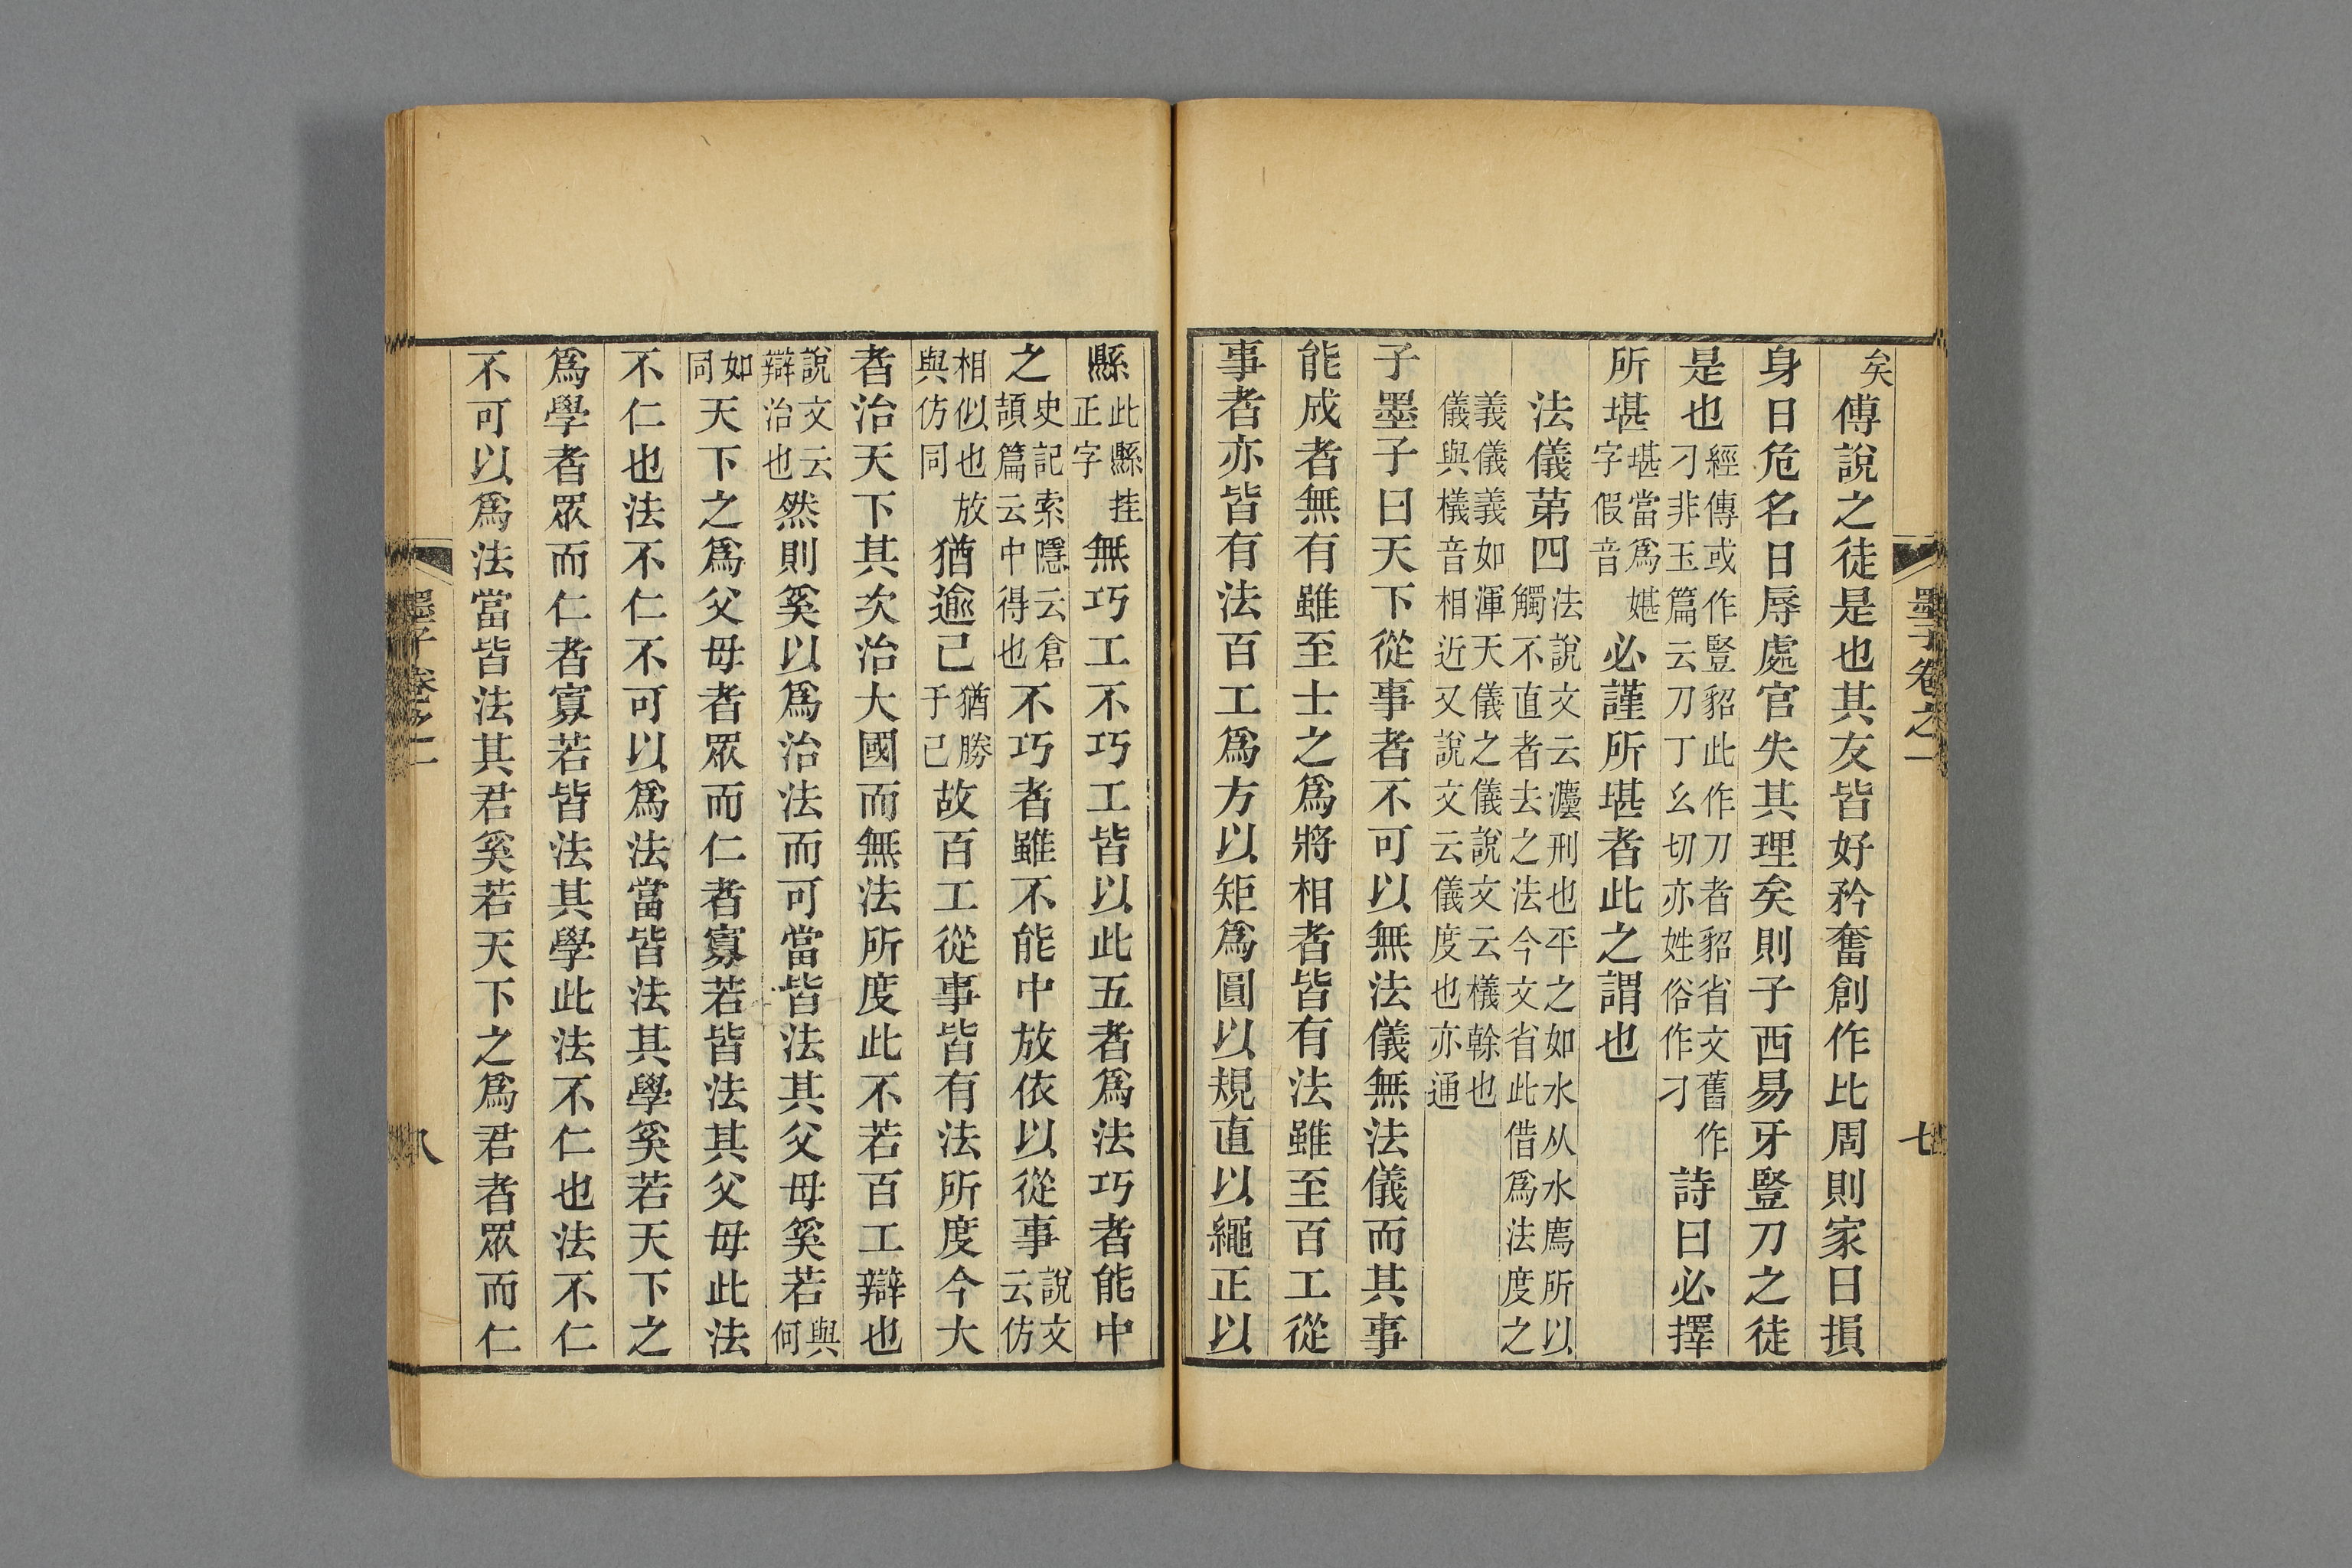 墨子卷之一 七
矣傅說之徒是也其友皆好矜奮創作比周則家日損
身日危名日辱處官失其理矣則子西易牙豎刀之徒
是也經傳或作豎貂此作刀者貂省文舊作刁非玉篇云刀丁幺切亦姓俗作刁詩曰必擇
所堪堪當爲媅字假音必謹所堪者此之謂也
法儀苐四法說文云灋刑也平之如水从水廌所以觸不直者去之法今文省此借爲法度之
義儀義如渾天儀之儀說文云檥榦也儀與檥音相近又說文云儀度也亦通
子墨子曰天下從事者不可以無法儀無法儀而其事
能成者無有雖至士之爲將相者皆有法雖至百工從
事者亦皆有法百工爲方以矩爲圓以規直以繩正以
縣此縣挂正字無巧工不巧工皆以此五者爲法巧者能中
之史記索隱云倉頡篇云中得也不巧者雖不能中放依以從事說文云仿
相似也放與仿同猶逾己猶勝于己故百工從事皆有法所度今大
者治天下其次治大國而無法所度此不若百工辯也
說文云辯治也然則奚以爲治法而可當皆法其父母奚若與何
如同天下之爲父母者眾而仁者寡若皆法其父母此法
不仁也法不仁不可以爲法當皆法其學奚若天下之
爲學者眾而仁者寡若皆法其學此法不仁也法不仁
不可以爲法當皆法其君奚若天下之爲君者眾而仁
墨子卷之一 八